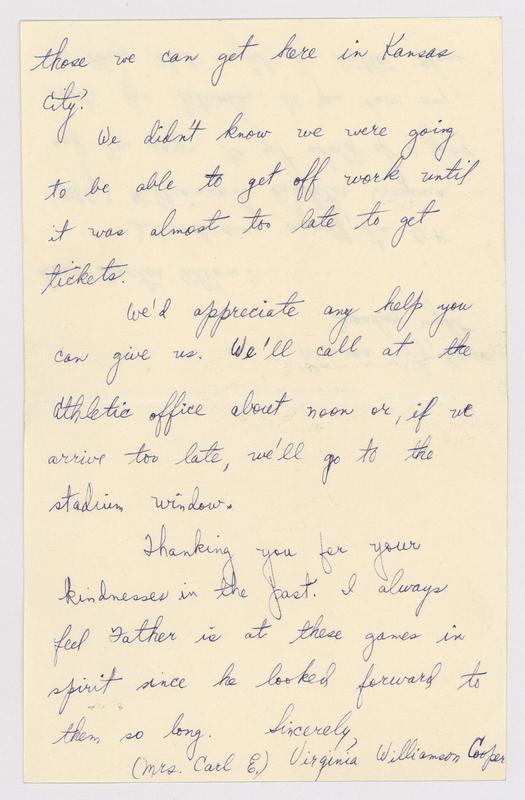 those we can get here in Kansas
City?
We didn't know we were going
to be able to get off work until
it was almost too late to get
tickets.
We'd appreciate any help you
can give us. We'll call at the
athletic office about noon or, if we
arrive too late, we'll go to the
stadium window.
Thanking you for your
kindnesses in the past. I always
feel Father is at these games in
spirit since he looked forward to
them so long. Sincerely,
(Mrs. Carl E.) Virginia Williamson Cooper